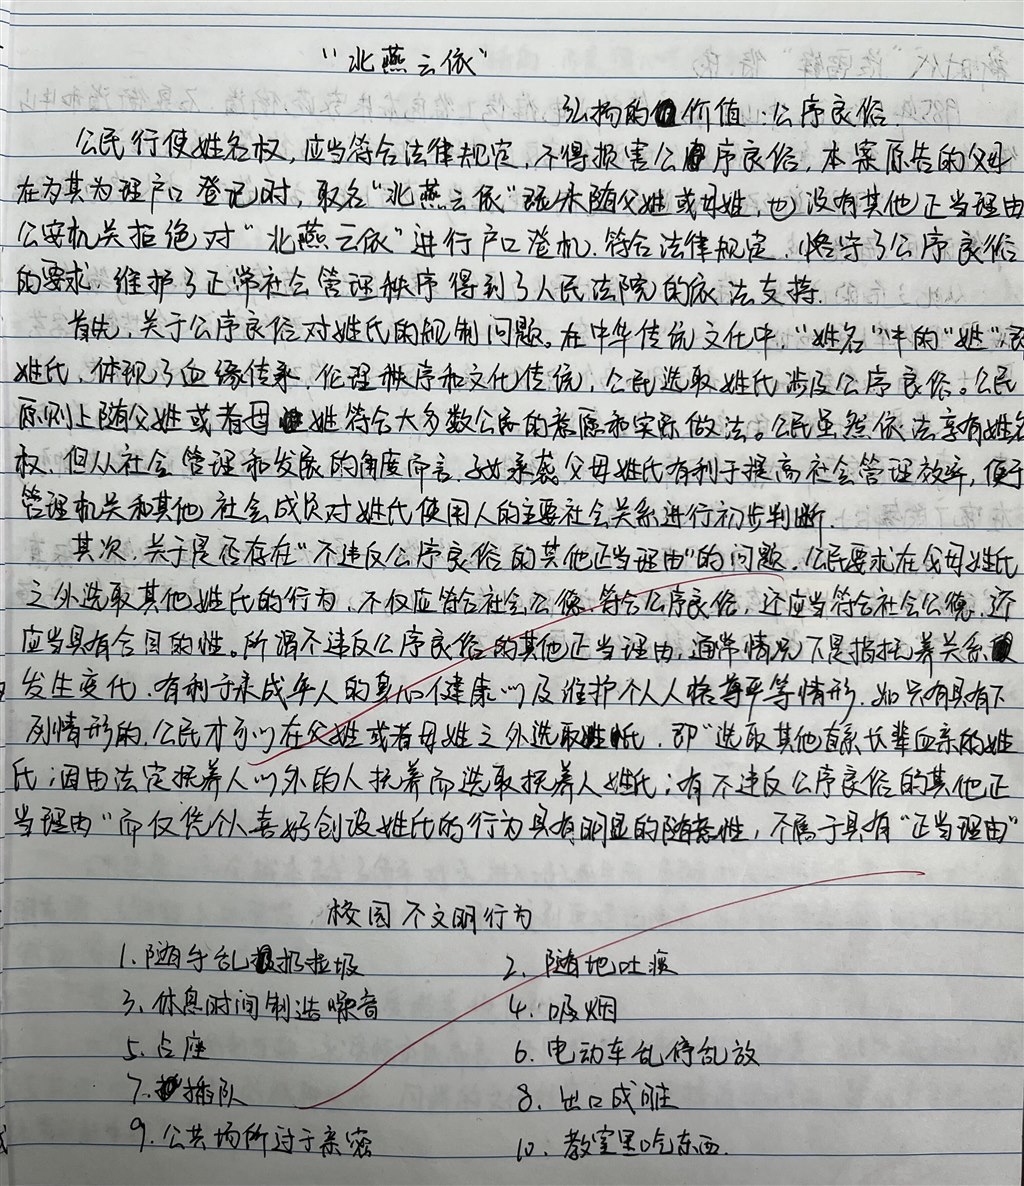 “北燕云依”
弘扬的价值:公序良俗
公民行使姓名权,应当符合法律规定,不得损害公序良俗,本案原告的父母
在为其办理户口登记时,取名“北燕云依”既未随父姓或母姓,也没有其他正当理由
公安机关拒绝对“北燕云依”进行户口登机,符合法律规定,恪守了公序良俗
的要求,维护了正常社会管理秩序得到了人民法院的依法支持.
首先,关于公序良俗对姓氏的规制问题。在中华传统文化中,“姓名”中的“姓”,即
姓氏,体现了血缘传承,伦理秩序和文化传统,公民选取姓氏涉及公序良俗。公民
原则上随父姓或者母姓符合大多数公民的意愿和实际做法。公民虽然依法享有姓名
权,但从社会管理和发展的角度而言,子女承袭父母姓氏有利于提高社会管理效率,便于
管理机关和其他社会成员对姓氏使用人的主要社会关系进行初步判断.
其次,关于是否存在“不违反公序良俗的其他正当理由”的问题,公民要求在父母姓氏
之外选取其他姓氏的行为,不仅应符合社会公德,符合公序良俗,还应当符合社会公德,还
应当具有合目的性。所谓不违反公序良俗的其他正当理由,通常情况下是指抚养关系
发生变化,有利于未成年人的身心健康以及维护个人人格尊严等情形,如只有具有下
列情形的,公民才可以在父姓或者母姓之外选取姓氏,即“选取其他直系长辈血亲的姓
氏;因由法定扶养人以外的人扶养而选取扶养人姓氏;有不违反公序良俗的其他正
当理由“而仅凭个人喜好创设姓氏的行为具有明显的随意性,不属于具有“正当理由”
校园不文明行为
1.随手乱扔垃圾 2.随地吐痰
3.休息时间制造噪音 4.吸烟
5.占座 6.电动车乱停乱放
7.插队 8.出口成脏
9.公共场所过于亲密 10.教室里吃东西.